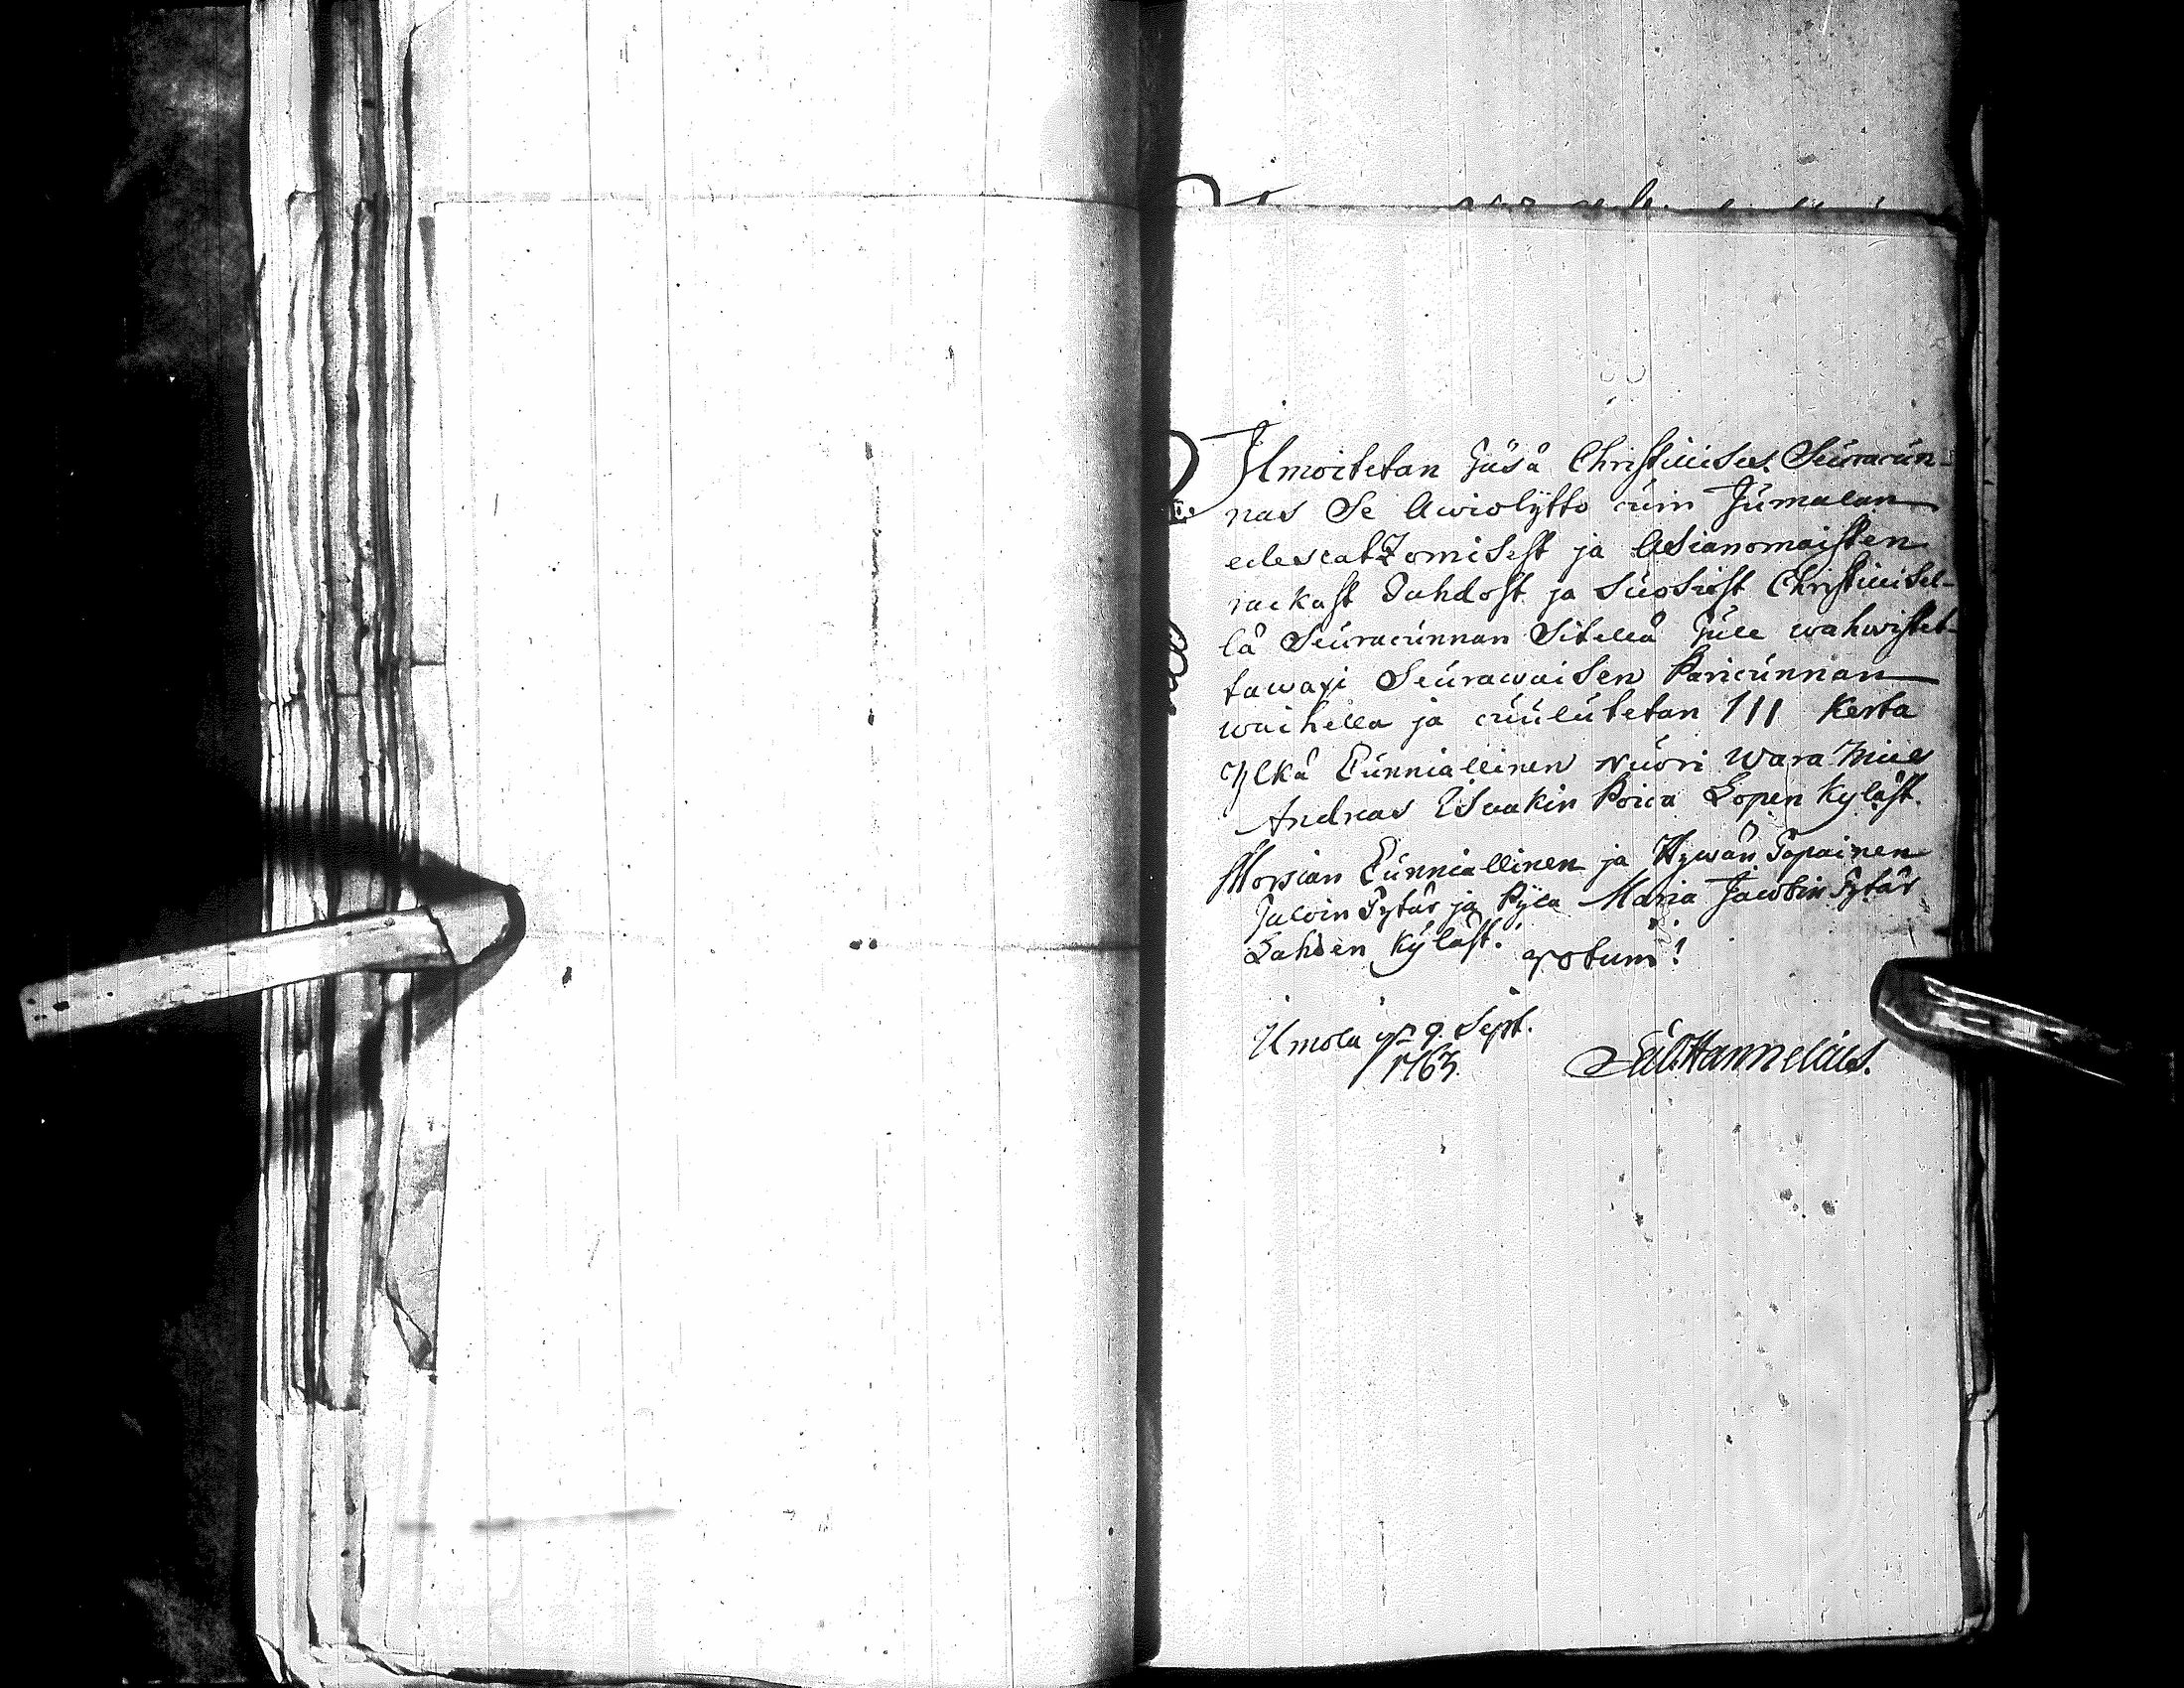 Ilmoitetan Täsä Christillises Seuracun-
nas Se Awiolytto cuin Jumalan
edescatzomisest ja Asianomaisten
rackast Tahdost ja Suosiost Christillisel-
lä Seuracunnan Sitellä Tule wahwistet-
tawaxi Seurawaisen Paricunnan
waihella ja cuulutetan III Kerta
Ylkä Cunniallinen Nuori Wara Mies
Andreas Esaakin Poica Lopen Kyläst.
Morsian Cunniallinen ja Hywän Tapainen
Taloin Tytär ja Pijca Maria Jacobin Tytär
Lahden Kyläst. votum!
Urnola 9 Sept.
1763. Hannelius.